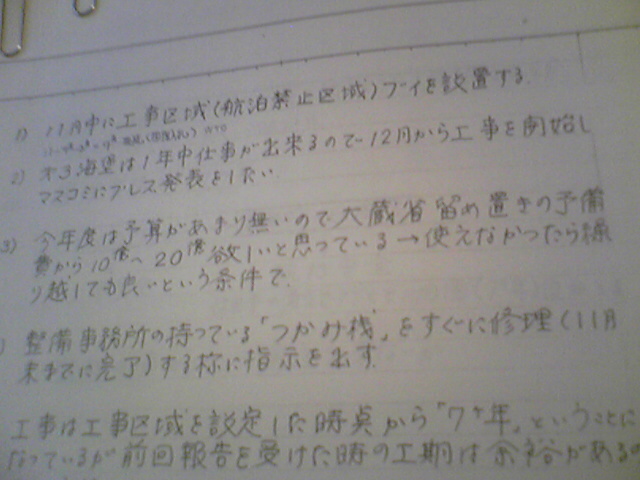 1) 11月中に工事区域(航泊禁止区域)ブイを設置する.
2) オ3海望は1年中仕事が出来るので12月から工事を開始し
マスコミにプレス発表をしたい.
3) 今年度は予算があまり無いので大蔵省留め置きの予備
費から10億〜20億欲しいと思っている→使えなかったら繰
り越しても良いという条件で.
) 整備事務所の持っている「つかみ桟」をすぐに修理(11月
末までに完了)する称に指示を出す.
工事は工事区域を設定した時点から「7ヶ年」ということに
なっているが前回報告を受けた時の工期は余裕があるの